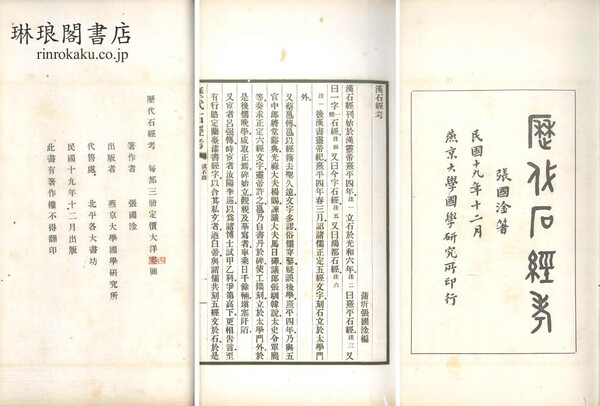 琳琅閣書店
rinrokaku.co.jp
歷代石經考
張國淦著
民國十九年十二月
燕京大學國學研究所印行
漢石經考
蒲圻張國淦編
漢石經刊始於漢靈帝熹平四年。注一立石於光和六年。注二曰熹平石經。注三又
曰一字石經。注四又曰今字石經。注五又曰鴻都石經。注六
注一後漢書靈帝紀熹平四年春三月詔諸儒正定五經文字刻石立於太學門
外。
又蔡邕傳邕以經籍去聖久遠文字多謬俗儒穿鑿疑誤後學熹平四年乃與五
官中郎將堂谿典光祿大夫楊賜諫議大夫馬日磾議郎張馴韓說太史令單颺
等奏求正定六經文字靈帝許之邕乃自書丹於碑使工鐫刻立於太學門外於
是後儒晚學咸取正焉碑始立觀視及摹寫者車乘日千餘輛填塞阡陌
又宦者呂強傳時宦者汝陽李巡以爲諸博士試甲乙科爭第高下更相告言至
有行賂定蘭臺漆書經字以合其私文者迺白帝與諸儒共刻五經文於石於是
歷代石經考 漢石經
歷代石經考 每部三册定價大洋 圓
著作者 張國淦
出版者 燕京大學國學研究所
代售處 北平各大書坊
民國十九年十二月出版
此書有著作權不得翻印